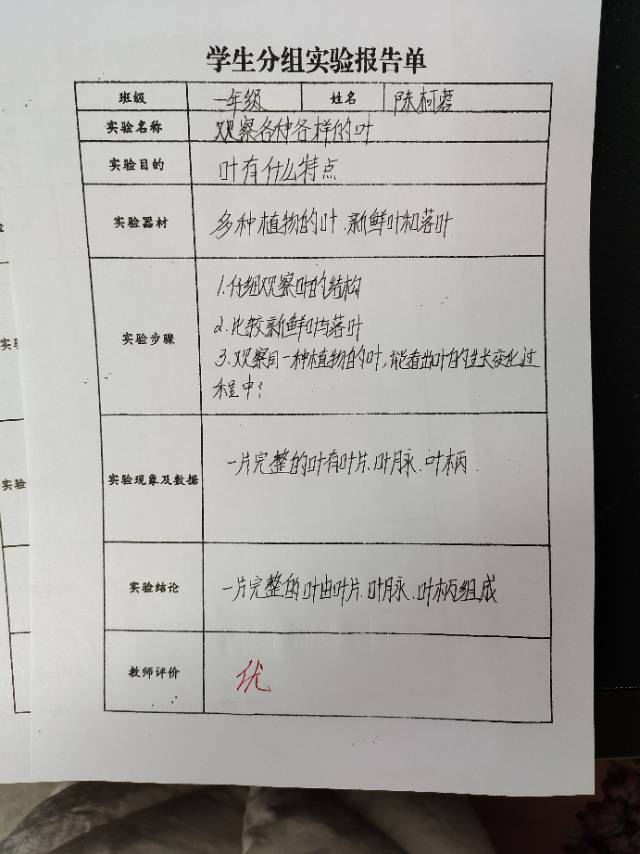 学生分组实验报告单
班级 一年级 姓名 陈柯蓉
实验名称 观察各种各样的叶
实验目的 叶有什么特点
实验器材 多种植物的叶、新鲜叶和落叶
1.仔细观察叶的结构
2.比较新鲜叶与落叶
实验步骤
3.观察同一种植物的叶,能看出叶的生长变化过
程中?
实验现象及数据 一片完整的叶有叶片、叶脉、叶柄.
实验结论 一片完整的叶由叶片、叶脉、叶柄组成
教师评价 优
实
实验